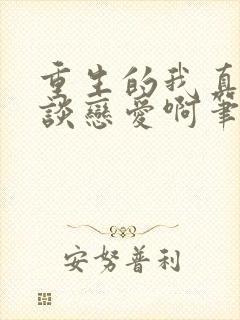 重生的我真
談戀愛啊筆
安努普利